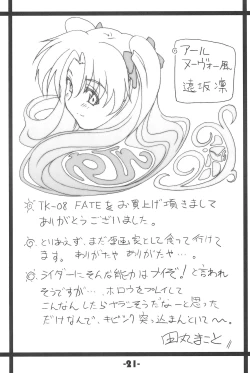 アール
ヌーヴォー風
遠坂凛
りん
TK-08 FATEをお買上げ頂きまして
ありがとうございました。
とりあえず、まだ漫画家として食って行けて
ます。ありがたや ありがたや…。
ライダーにそんな能力はナイぞ!と言われ
そうですが… ホロウをプレイして
こんなんしたらヤラこそうだなーと思った
だけなんで、キビシク突っ込まんといて〜。
田丸まこと
-21-